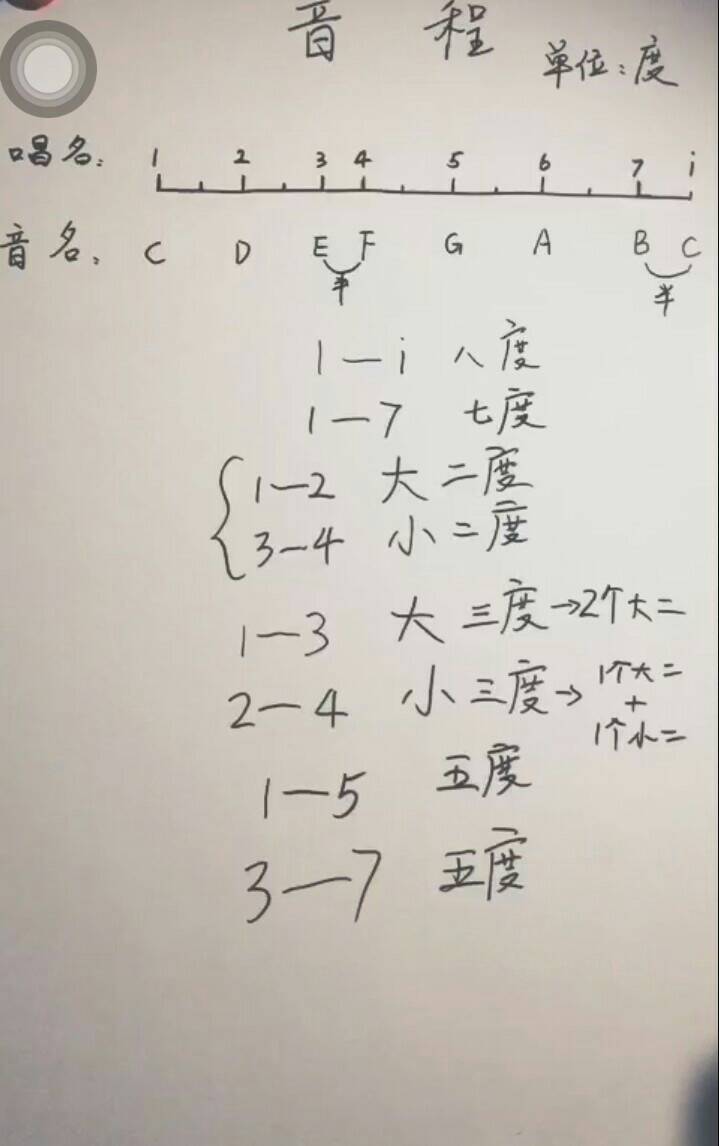 音程
单位：度
唱名： 1 2 3 4 5 6 7 i
音名： C D E F G A B C
半 半
1—i 八度
1—7 七度
1—2 大二度
3—4 小二度
1—3 大三度→2个大二
2—4 小三度→1个大二
+
1个小二
1—5 五度
3—7 五度